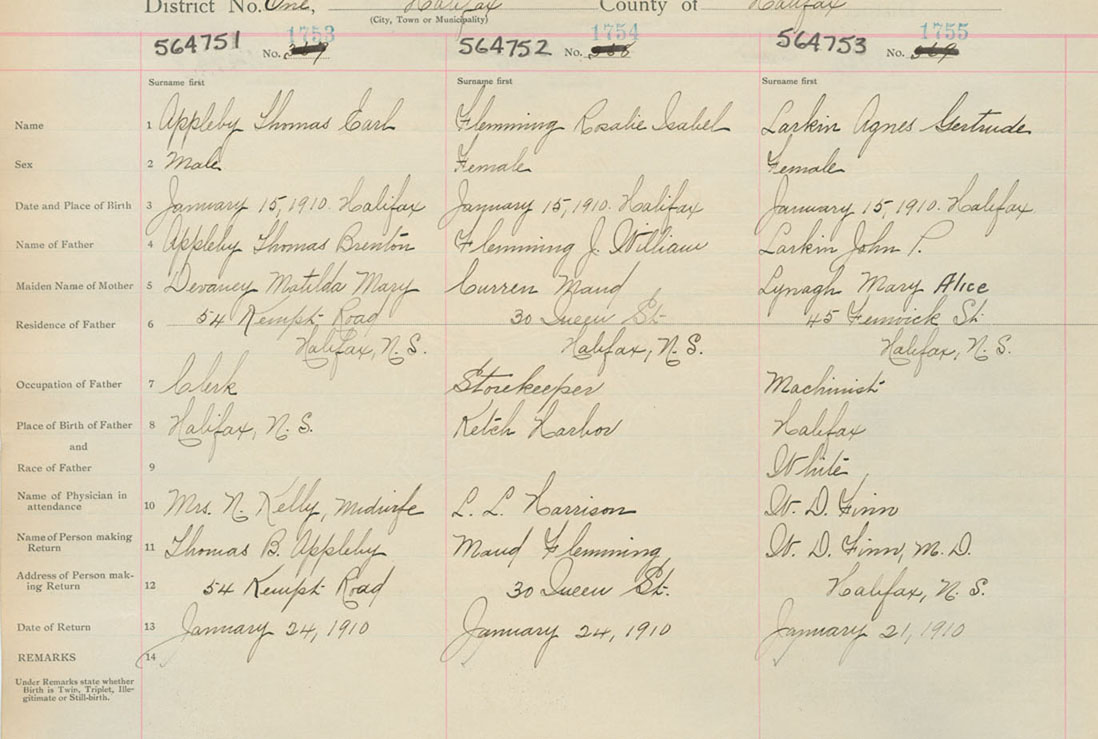 District No. One, Halifax County of Halifax
(City, Town or Municipality)
564751 No. 1753 564752 No. 1754 564753 No. 1755
Surname first Surname first Surname first
Name 1 Appleby Thomas Earl Flemming Rosalie Isabel Larkin Agnes Gertrude
Sex 2 Male Female Female
Date and Place of Birth 3 January 15, 1910. Halifax January 15, 1910. Halifax January 15, 1910. Halifax
Name of Father 4 Appleby Thomas Brenton Flemming J. William Larkin John P.
Maiden Name of Mother 5 Devaney Matilda Mary Curren Maud Lynagh Mary Alice
Residence of Father 6 54 Kempt Road 30 Queen St. 45 Fenwick St.
Halifax, N.S. Halifax, N.S. Halifax, N.S.
Occupation of Father 7 Clerk Storekeeper Machinist
Place of Birth of Father 8 Halifax, N.S. Ketch Harbor Halifax
and
Race of Father 9 White
Name of Physician in
attendance 10 Mrs. N. Kelly, Midwife L. L. Harrison W. D. Finn
Name of Person making
Return 11 Thomas B. Appleby Maud Flemming W. D. Finn, M.D.
Address of Person mak-
ing Return 12 54 Kempt Road 30 Queen St. Halifax, N.S.
Date of Return 13 January 24, 1910 January 24, 1910 January 21, 1910
REMARKS 14
Under Remarks state whether
Birth is Twin, Triplet, Ille-
gitimate or Still-birth.